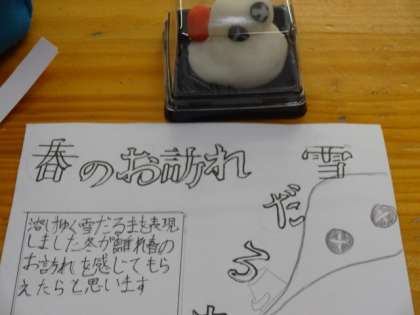 春のお訪れ
雪だるま
溶けゆく雪だるまを表現
しました冬が離れ春の
お訪れを感じてもら
えたらと思います